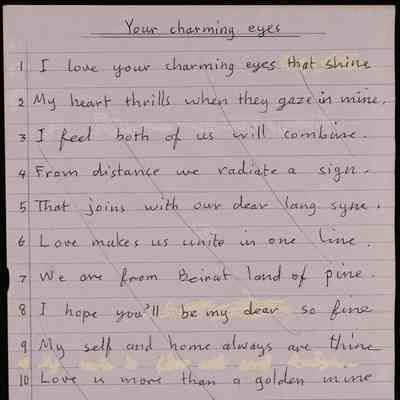 Your charming eyes
1 I love your charming eyes that shine
2 My heart thrills when they gaze in mine.
3 I feel both of us will combine.
4 From distance we radiate a sign.
5 That joins with our dear lang syne.
6 Love makes us unite in one line.
7 We are from Beirut land of pine.
8 I hope you'll be my dear so fine
9 My self and home always are thine
10 Love is more than a golden mine